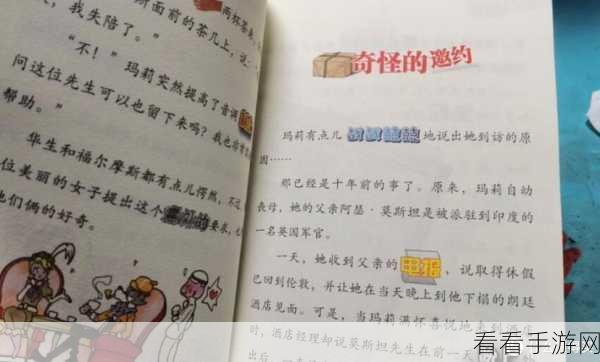 两杯茶
所面前的茶几上，说：
，我失陪了。”
“不！”玛莉突然提高了音调
问这位先生可以也留下来吗？我也
帮助。”
华生和福尔摩斯都有点儿愕然，不
位美丽的女子提出这个要求，
他们俩的好奇。
奇怪的邀约
玛莉有点儿
地说出她到访的原
因……
那已经是十年前的事了。原来，玛莉自幼
丧母，她的父亲阿瑟·莫斯坦是被派驻到印度的
一名英国军官。
一天，她收到父亲的电报，说取得休假
已回到伦敦，并让她在当天晚上到他下榻的朗廷
酒店见面。可是，当玛莉满怀喜悦地来到酒店
时，酒店经理却说莫斯坦先生在前一天
出后，一
看看手游网